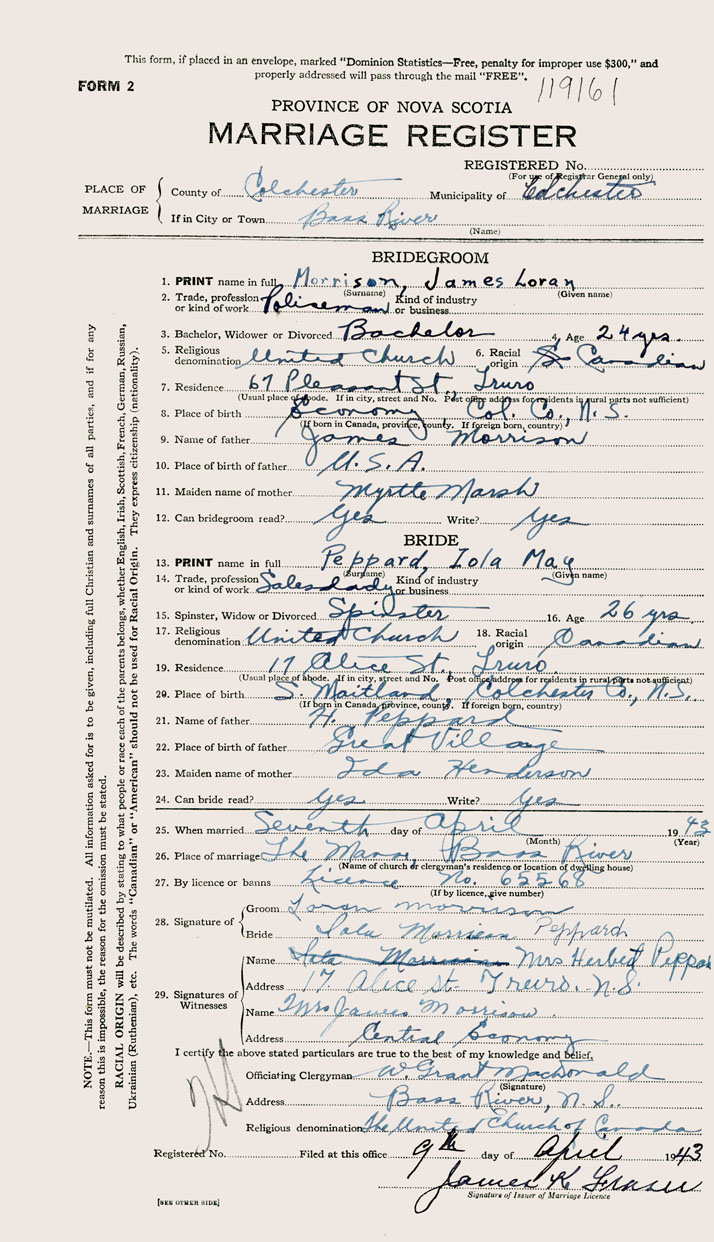 This form, if placed in an envelope, marked "Dominion Statistics—Free, penalty for improper use $300," and
properly addressed will pass through the mail "FREE".
FORM 2
119161
PROVINCE OF NOVA SCOTIA
MARRIAGE REGISTER
REGISTERED No.
(For use of Registrar General only)
PLACE OF MARRIAGE
County of Colchester Municipality of Colchester
If in City or Town Bass River
(Name)
BRIDEGROOM
1. PRINT name in full Morrison, James Loran
(Surname) (Given name)
2. Trade, profession or kind of work Policeman Kind of industry or business
3. Bachelor, Widower or Divorced Bachelor 4. Age 24 yrs.
5. Religious denomination United Church 6. Racial origin Canadian
7. Residence 67 Pleasant St., Truro
(Usual place of abode. If in city, street and No. Post office address for residents in rural parts not sufficient)
8. Place of birth Economy, Col. Co., N.S.
(If born in Canada, province, county. If foreign born, country)
9. Name of father James Morrison
10. Place of birth of father U.S.A.
11. Maiden name of mother Myrtle Marsh
12. Can bridegroom read? Yes Write? Yes
BRIDE
13. PRINT name in full Peppard, Iola May
(Surname) (Given name)
14. Trade, profession or kind of work Saleslady Kind of industry or business
15. Spinster, Widow or Divorced Spinster 16. Age 26 yrs.
17. Religious denomination United Church 18. Racial origin Canadian
19. Residence 17 Alice St., Truro
(Usual place of abode. If in city, street and No. Post office address for residents in rural parts not sufficient)
20. Place of birth S. Maitland, Colchester Co., N.S.
(If born in Canada, province, county. If foreign born, country)
21. Name of father H. Peppard
22. Place of birth of father Great Village
23. Maiden name of mother Ida Henderson
24. Can bride read? Yes Write? Yes
25. When married Seventh day of April 1943
(Month) (Year)
26. Place of marriage The Manse, Bass River
(Name of church or clergyman's residence or location of dwelling house)
27. By licence or banns Licence No. 65568
(If by licence, give number)
28. Signature of
Groom Loran Morrison
Bride Iola Morrison Peppard
29. Signatures of Witnesses
Name Iola Morrison Mrs Herbert Peppar
Address 17 Alice St. Truro, N.S.
Name Mrs James Morrison
Address Central Economy
I certify the above stated particulars are true to the best of my knowledge and belief.
Officiating Clergyman W. Grant MacDonald
(Signature)
Address Bass River, N.S.
Religious denomination The United Church of Canada
Registered No. Filed at this office 9th day of April 1943
James K Fraser
Signature of Issuer of Marriage Licence
[SEE OTHER SIDE]
NOTE.—This form must not be mutilated. All information asked for is to be given, including full Christian and surnames of all parties, and if for any
reason this is impossible, the reason for the omission must be stated.
RACIAL ORIGIN will be described by stating to what people or race each of the parents belongs, whether English, Irish, Scottish, French, German, Russian,
Ukrainian (Ruthenian), etc. The words "Canadian" or "American" should not be used for Racial Origin. They express citizenship (nationality).